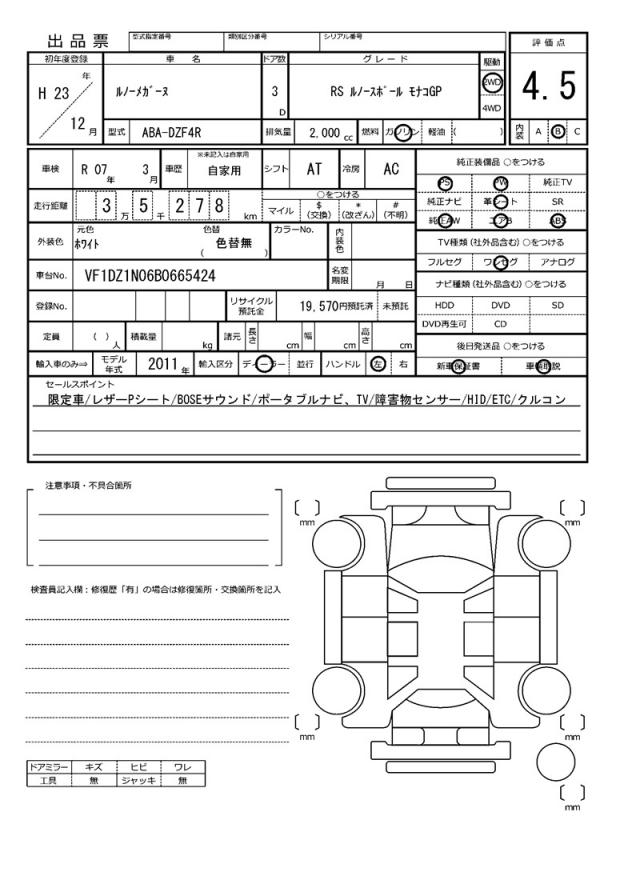 出品票 型式指定番号 類別区分番号 シリアル番号
初年度登録 車名 ドア数 グレード 駆動 評価点
H 23 年 ルノーメガーヌ 3 D RS ルノースポール モナコGP 2WD 4WD 4.5
12 月 型式 ABA-DZF4R 排気量 2,000 cc 燃料 ガソリン 軽油 ( ) 内装 A B C
車検 R 07 年 3 月 車歴 ※未記入は自家用 自家用 シフト AT 冷房 AC 純正装備品 ○をつける
PS PW 純正TV
走行距離 3 5 万 千 2 7 8 km ○をつける 純正ナビ 革シート SR
マイル $ (交換) * (改ざん) # (不明) 純正AW エアB ABS
外装色 元色 ホワイト 色替 ( 色替無 ) カラーNo. 内装色 TV種類 (社外品含む) ○をつける
フルセグ ワンセグ アナログ
車台No. VF1DZ1N06B0665424 名変期限 月 日 ナビ種類 (社外品含む) ○をつける
登録No. リサイクル預託金 19,570円預託済 未預託 HDD DVD SD
DVD再生可 CD
定員 ( ) 人 積載量 kg 諸元 長さ cm 幅 cm 高さ cm 後日発送品 ○をつける
輸入車のみ⇒ モデル年式 2011 年 輸入区分 ディーラー 並行 ハンドル 左 右 新車保証書 車輌取説
セールスポイント
限定車/レザーPシート/BOSEサウンド/ポータブルナビ、TV/障害物センサー/HID/ETC/クルコン
注意事項・不具合箇所
mm mm
検査員記入欄：修復歴「有」の場合は修復箇所・交換箇所を記入
mm mm
ドアミラー キズ ヒビ ワレ
工具 無 ジャッキ 無
mm